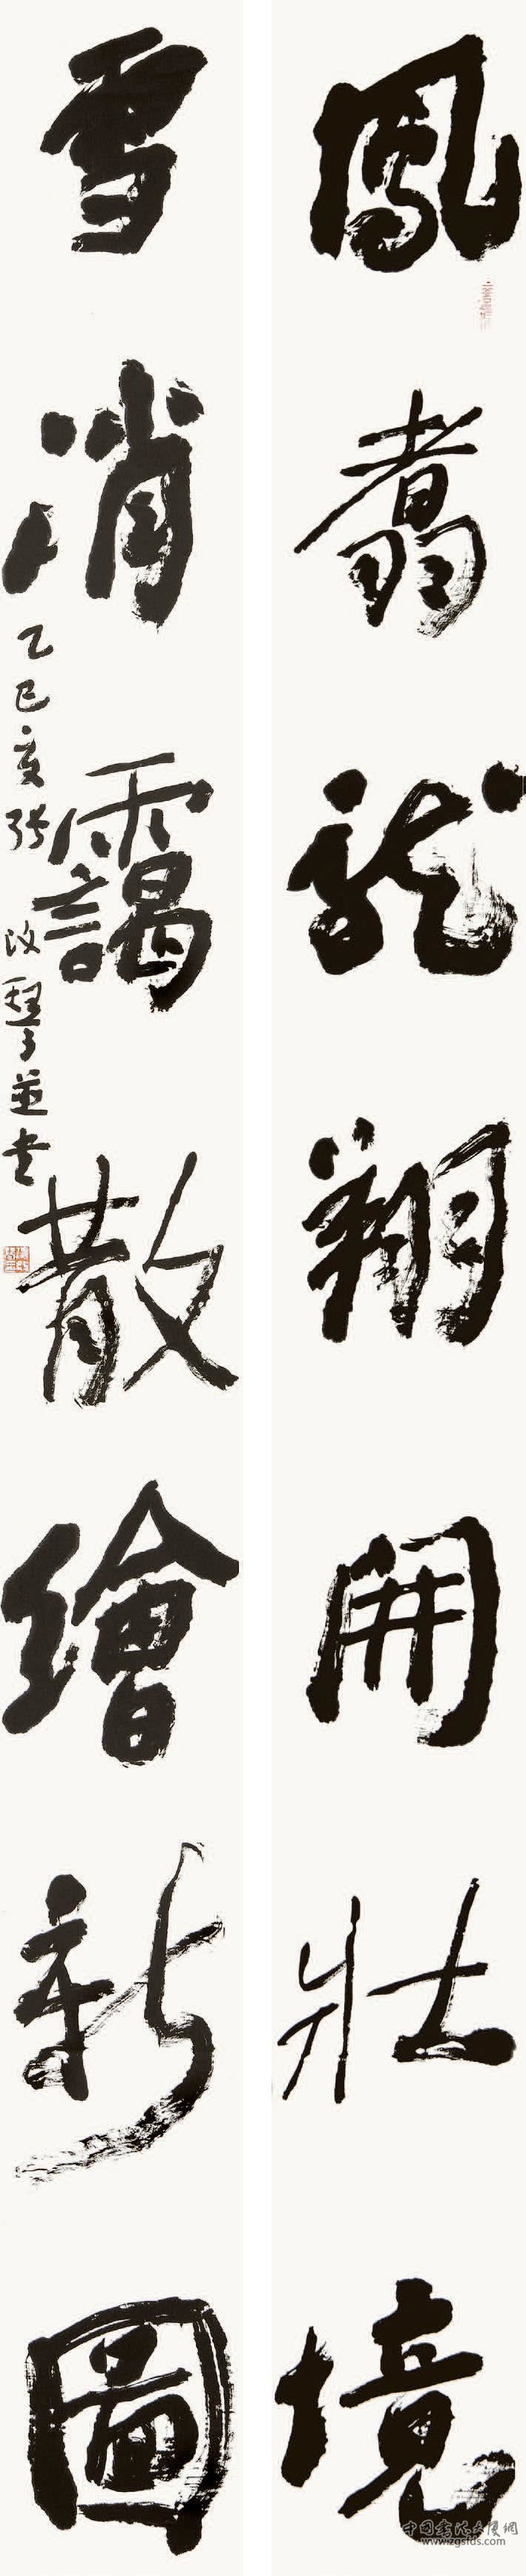 鳳翥龍翔開壯境
雪消靄散繪新圖
乙巳夏張改琴並書
中国书法大厦网
www.zgsfds.com